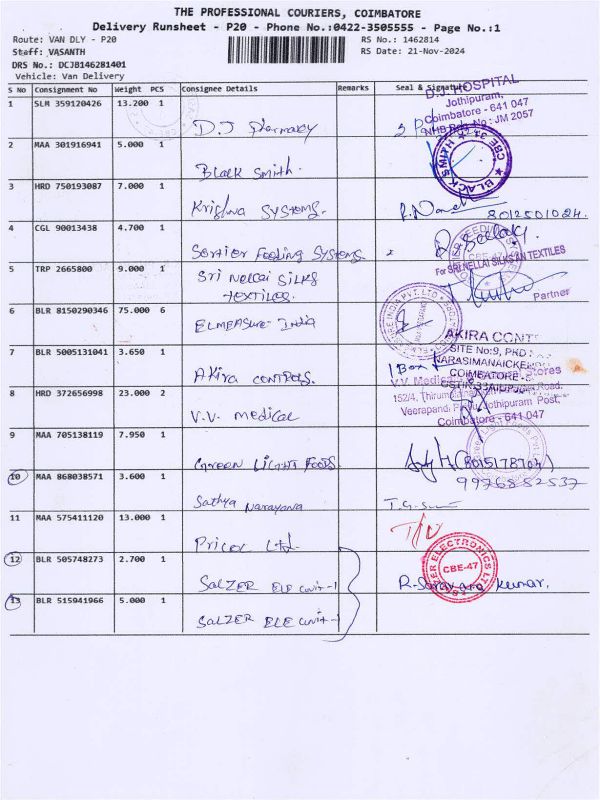 THE PROFESSIONAL COURIERS, COIMBATORE
Delivery Runsheet - P20 - Phone No.:0422-3505555 - Page No.:1
Route: VAN DLY - P20
RS No.: 1462814
Staff: VASANTH
RS Date: 21-Nov-2024
DRS No.: DCJB146281401
Vehicle: Van Delivery
S No Consignment No Weight PCS Consignee Details Remarks Seal & Signature
1 SLM 359120426 13.200 1
D.J Pharmacy
D.J. HOSPITAL
Jothipuram,
Coimbatore - 641 047
NHB Reg No : JM 2057
2 MAA 301916941 5.000 1
Black Smith.
BLACK SMITH CBE 31
3 HRD 750193087 7.000 1
Krishna Systems.
8012501024.
4 CGL 90013438 4.700 1
Sortier Feeding Systems
5 TRP 2665800 9.000 1
Sri Nellai Silks
Textiles.
For SRI NELLAI SILKS AN TEXTILES
Partner
6 BLR 8150290346 75.000 6
ELMEASURE India
7 BLR 5005131041 3.650 1
Akira Controls.
1 Box
AKIRA CONT
SITE No:9, PKD
NARASIMANAICKE
COIMBATORE -
8 HRD 372656998 23.000 2
V.V. Medical
V.V. Medical Stores
152/4, Thirumalai Road,
Veerapandi Jothipuram Post,
Coimbatore - 641 047
9 MAA 705138119 7.950 1
Green Light Foods
10 MAA 868038571 3.600 1
Sathya Narayana
9976852537
11 MAA 575411120 13.000 1
Pricol Ltd.
12 BLR 505748273 2.700 1
SALZER ELE Unit-1
SALZER ELECTRONICS LTD
CBE-47
R. Saravana Kumar.
13 BLR 515941966 5.000 1
SALZER ELE Unit-1